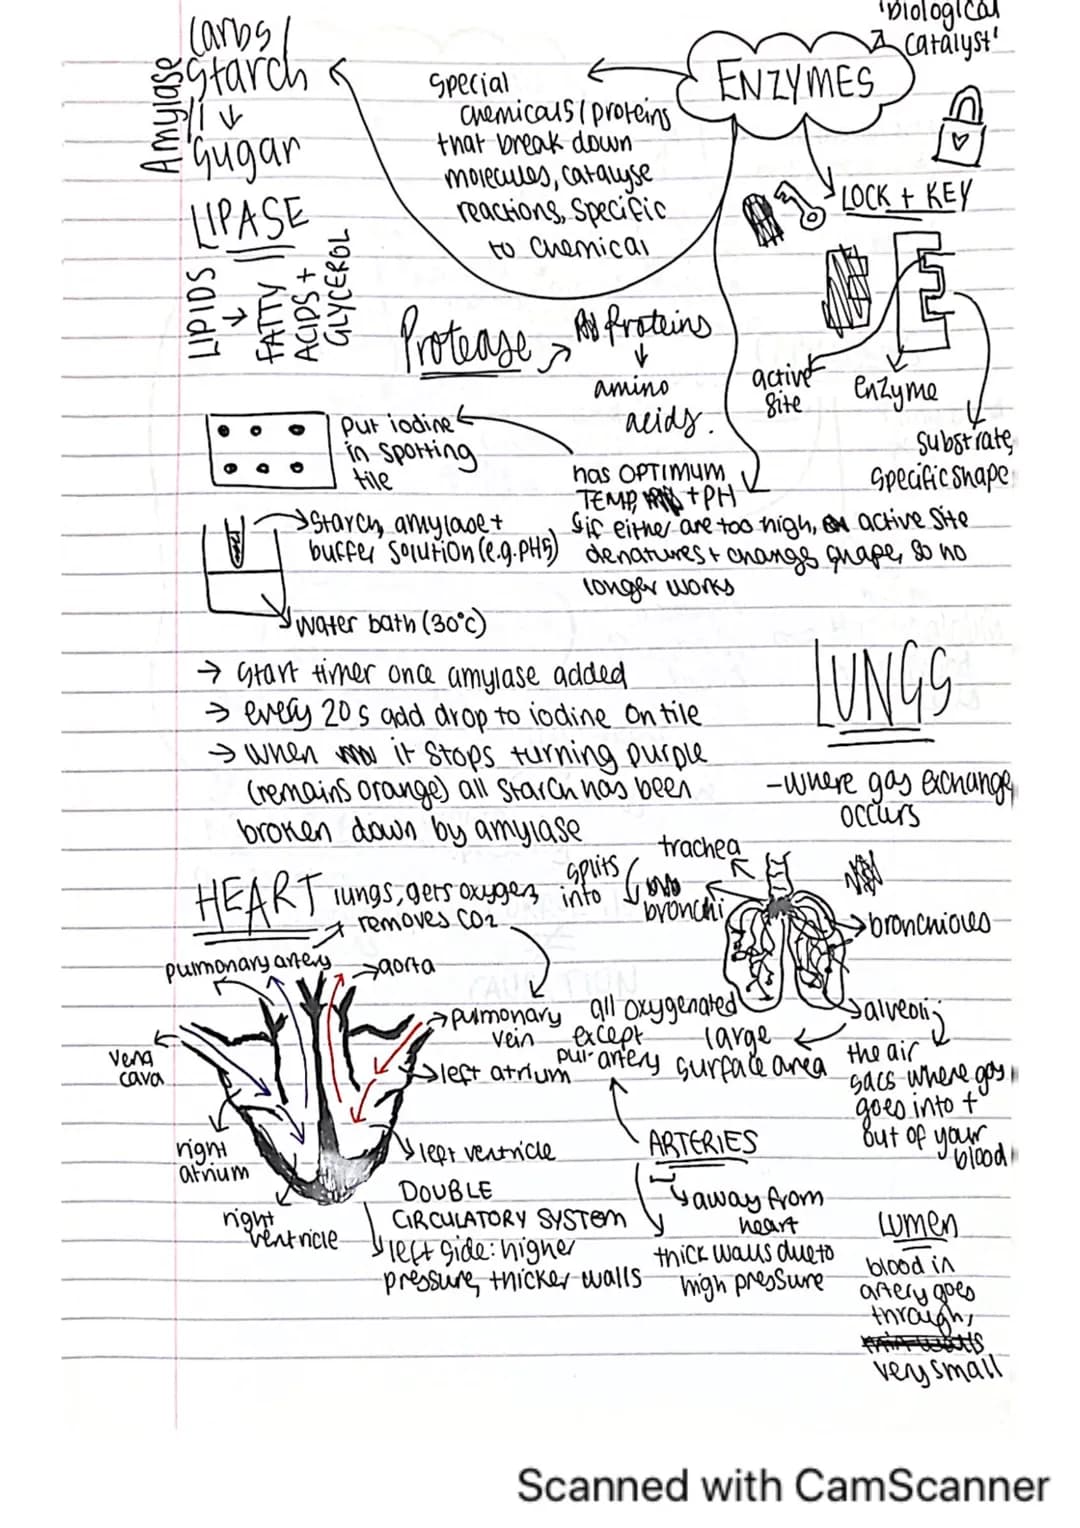 'biological
catalyst'
ENZYMES
Special
chemicals/proteins
that break down
molecules, catalyse
reactions, specific
to chemical
Carbs/
Starch
Sugar
Amylase
LIPASE
LIPIDS
→
FATTY
ACIDS +
GLYCEROL
Protease
Proteins
amino
acids.
LOCK + KEY
active
site
enzyme
substrate,
specific shape
has OPTIMUM
TEMP, + PH
if either are too high, active site
denatures + changes shape, so no
longer works
put iodine
in spotting
tile
starch, amylase +
buffer solution (e.g. pH5)
water bath (30°c)
→ start timer once amylase added
→ every 20s add drop to iodine on tile
→ when it stops turning purple
(remains orange) all starch has been
broken down by amylase
LUNGS
- where gas exchange
occurs
trachea
splits
into
bronchi
bronchioles
alveoli
the air
sacs where gas
goes into +
out of your
blood
large
surface area
HEART
lungs, gets oxygen
removes CO2
pulmonary artery
aorta
pulmonary
vein
vena
cava
left atrium
right
atrium
left ventricle
right
ventricle
DOUBLE
CIRCULATORY SYSTEM
left side: higher
pressure, thicker walls
all oxygenated
except
pul. artery
ARTERIES
away from
heart
thick walls due to
high pressure
Lumen
blood in
artery goes
through,
very small
Scanned with CamScanner